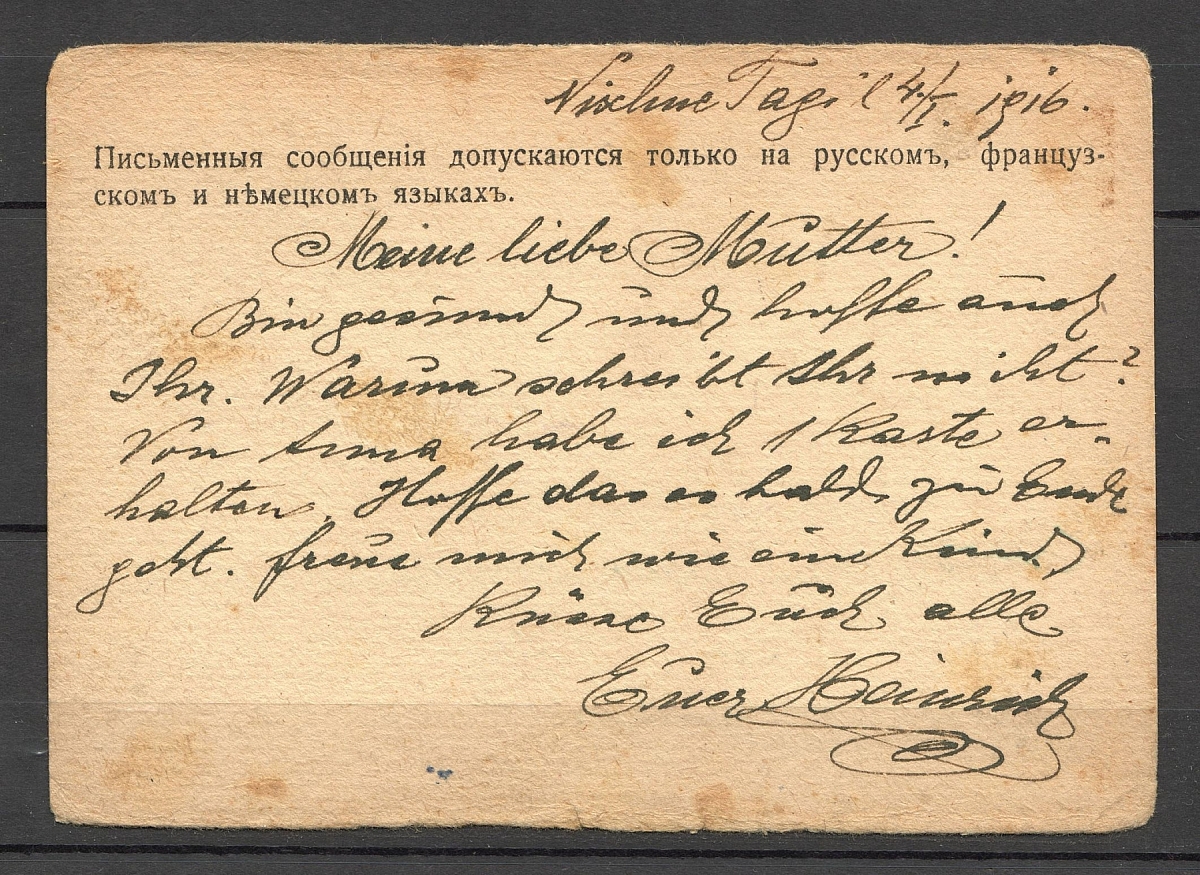 Nischne Tagil 4/I. 1916.
Письменныя сообщенія допускаются только на русскомъ, француз-
скомъ и нѣмецкомъ языкахъ.
Meine liebe Mutter!
Bin gesund und hoffe auch
Ihr. Warum schreibt Ihr nicht?
Von Anna habe ich 1 Karte er-
halten. Hoffe das es bald zu Ende
geht. freue mich wie ein Kind.
Küsse Euch alle
Euer Heinrich